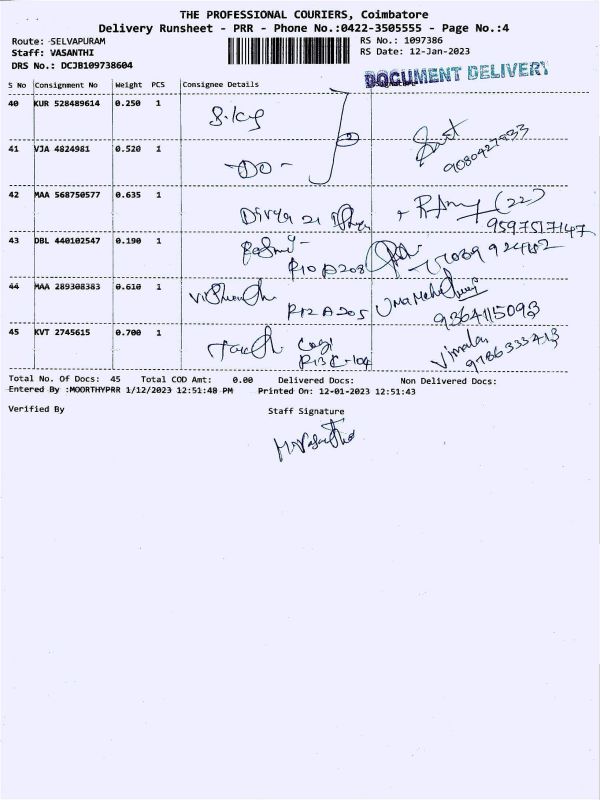 THE PROFESSIONAL COURIERS, Coimbatore
Delivery Runsheet - PRR - Phone No.:0422-3505555 - Page No.:4
Route: SELVAPURAM RS No.: 1097386
Staff: VASANTHI RS Date: 12-Jan-2023
DRS No.: DCJB109738604 DOCUMENT DELIVERY
S No Consignment No Weight PCS Consignee Details
40 KUR 528489614 0.250 1
41 VJA 4824981 0.520 1 -DO- 9080427933
42 MAA 568750577 0.635 1 Divya 21 (22) 9597517147
43 DBL 440102547 0.190 1 R10 A208
44 MAA 289308383 0.610 1 R12 A205 9364115093
45 KVT 2745615 0.700 1 R13 C-104 Vimala 9786333413
Total No. Of Docs: 45 Total COD Amt: 0.00 Delivered Docs: Non Delivered Docs:
Entered By :MOORTHYPRR 1/12/2023 12:51:40 PM Printed On: 12-01-2023 12:51:43
Verified By Staff Signature